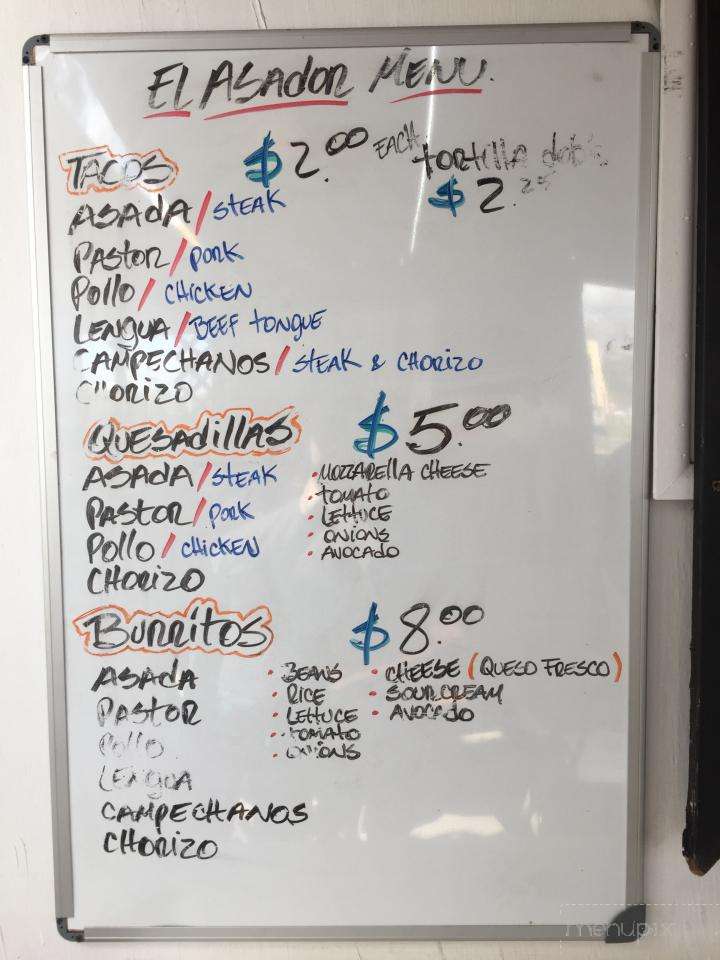 EL ASADOR MENU.
TACOS $2.00 EACH tortilla doble
$2.25
ASADA / STEAK
PASTOR / PORK
POLLO / CHICKEN
LENGUA / BEEF TONGUE
CAMPECHANOS / STEAK & CHORIZO
CHORIZO
QUESADILLAS $5.00
ASADA / STEAK • MOZZARELLA CHEESE
• TOMATO
PASTOR / PORK • LETTUCE
• ONIONS
POLLO / CHICKEN • AVOCADO
CHORIZO
BURRITOS $8.00
ASADA • BEANS • CHEESE (QUESO FRESCO)
• RICE • SOUR CREAM
PASTOR • LETTUCE • AVOCADO
• TOMATO
POLLO • ONIONS
LENGUA
CAMPECHANOS
CHORIZO
menupix